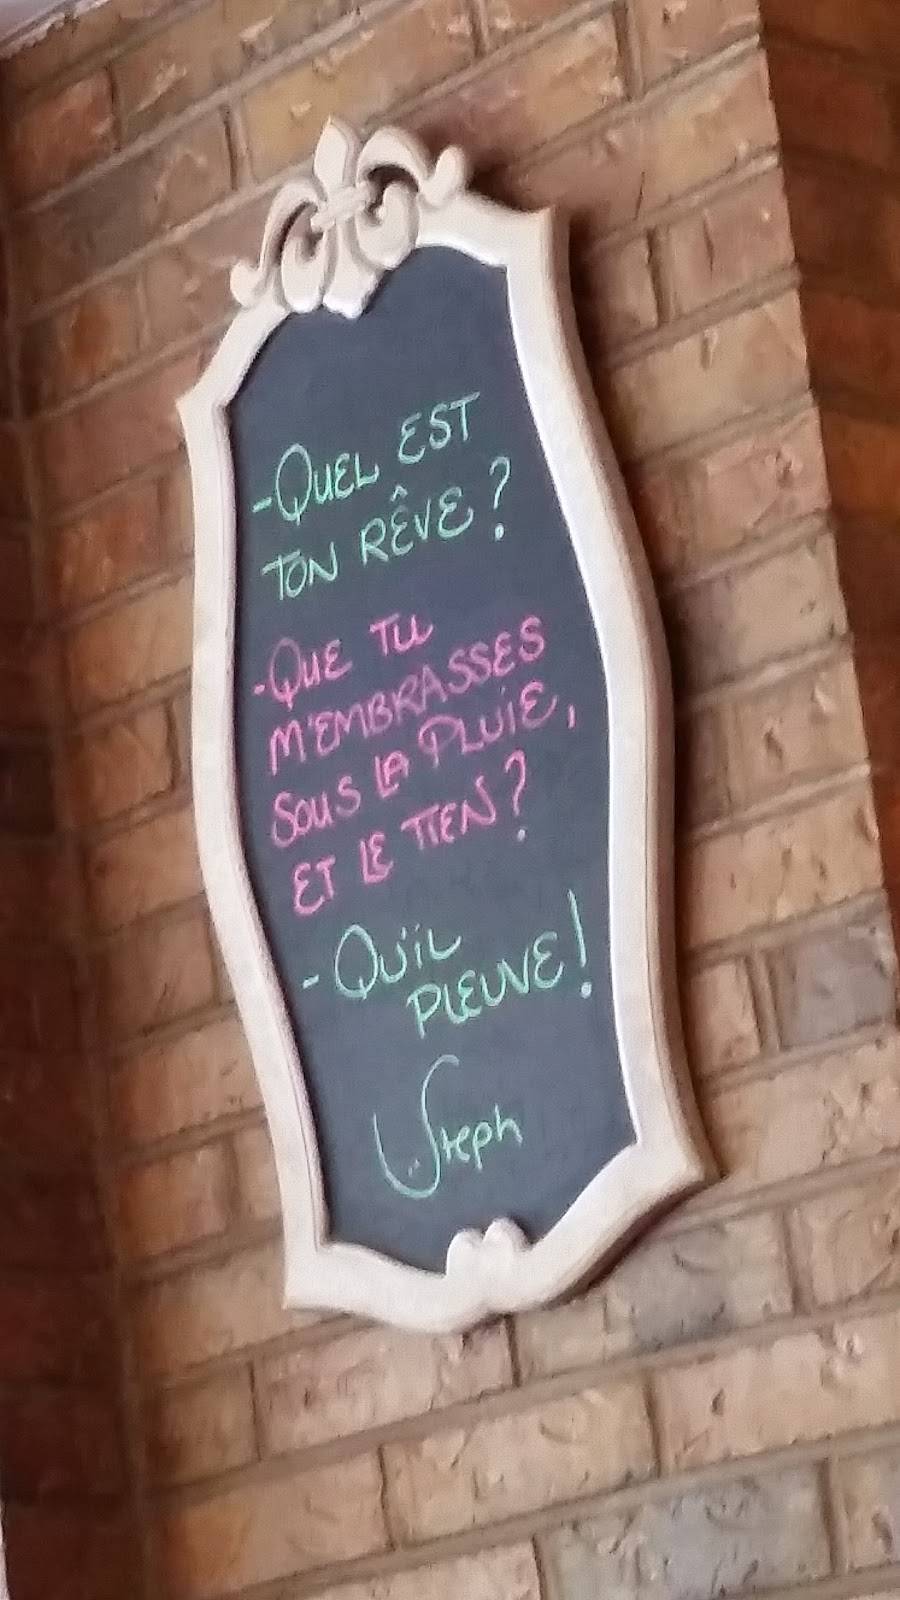 -QUEL EST
TON RÊVE?
-QUE TU
M'EMBRASSES
SOUS LA PLUIE,
ET LE TIEN?
-QU'IL
PLEUVE!
Steph